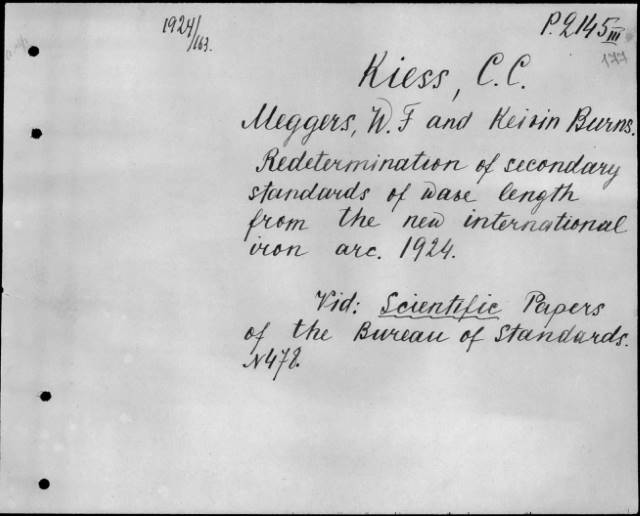 1924/163.
P. 2145 III
177
Kiess, C.C.
Meggers, W. F and Keivin Burns.
Redetermination of secondary
standards of wave length
from the new international
iron arc. 1924.
Vid: Scientific Papers
of the Bureau of Standards.
N478.